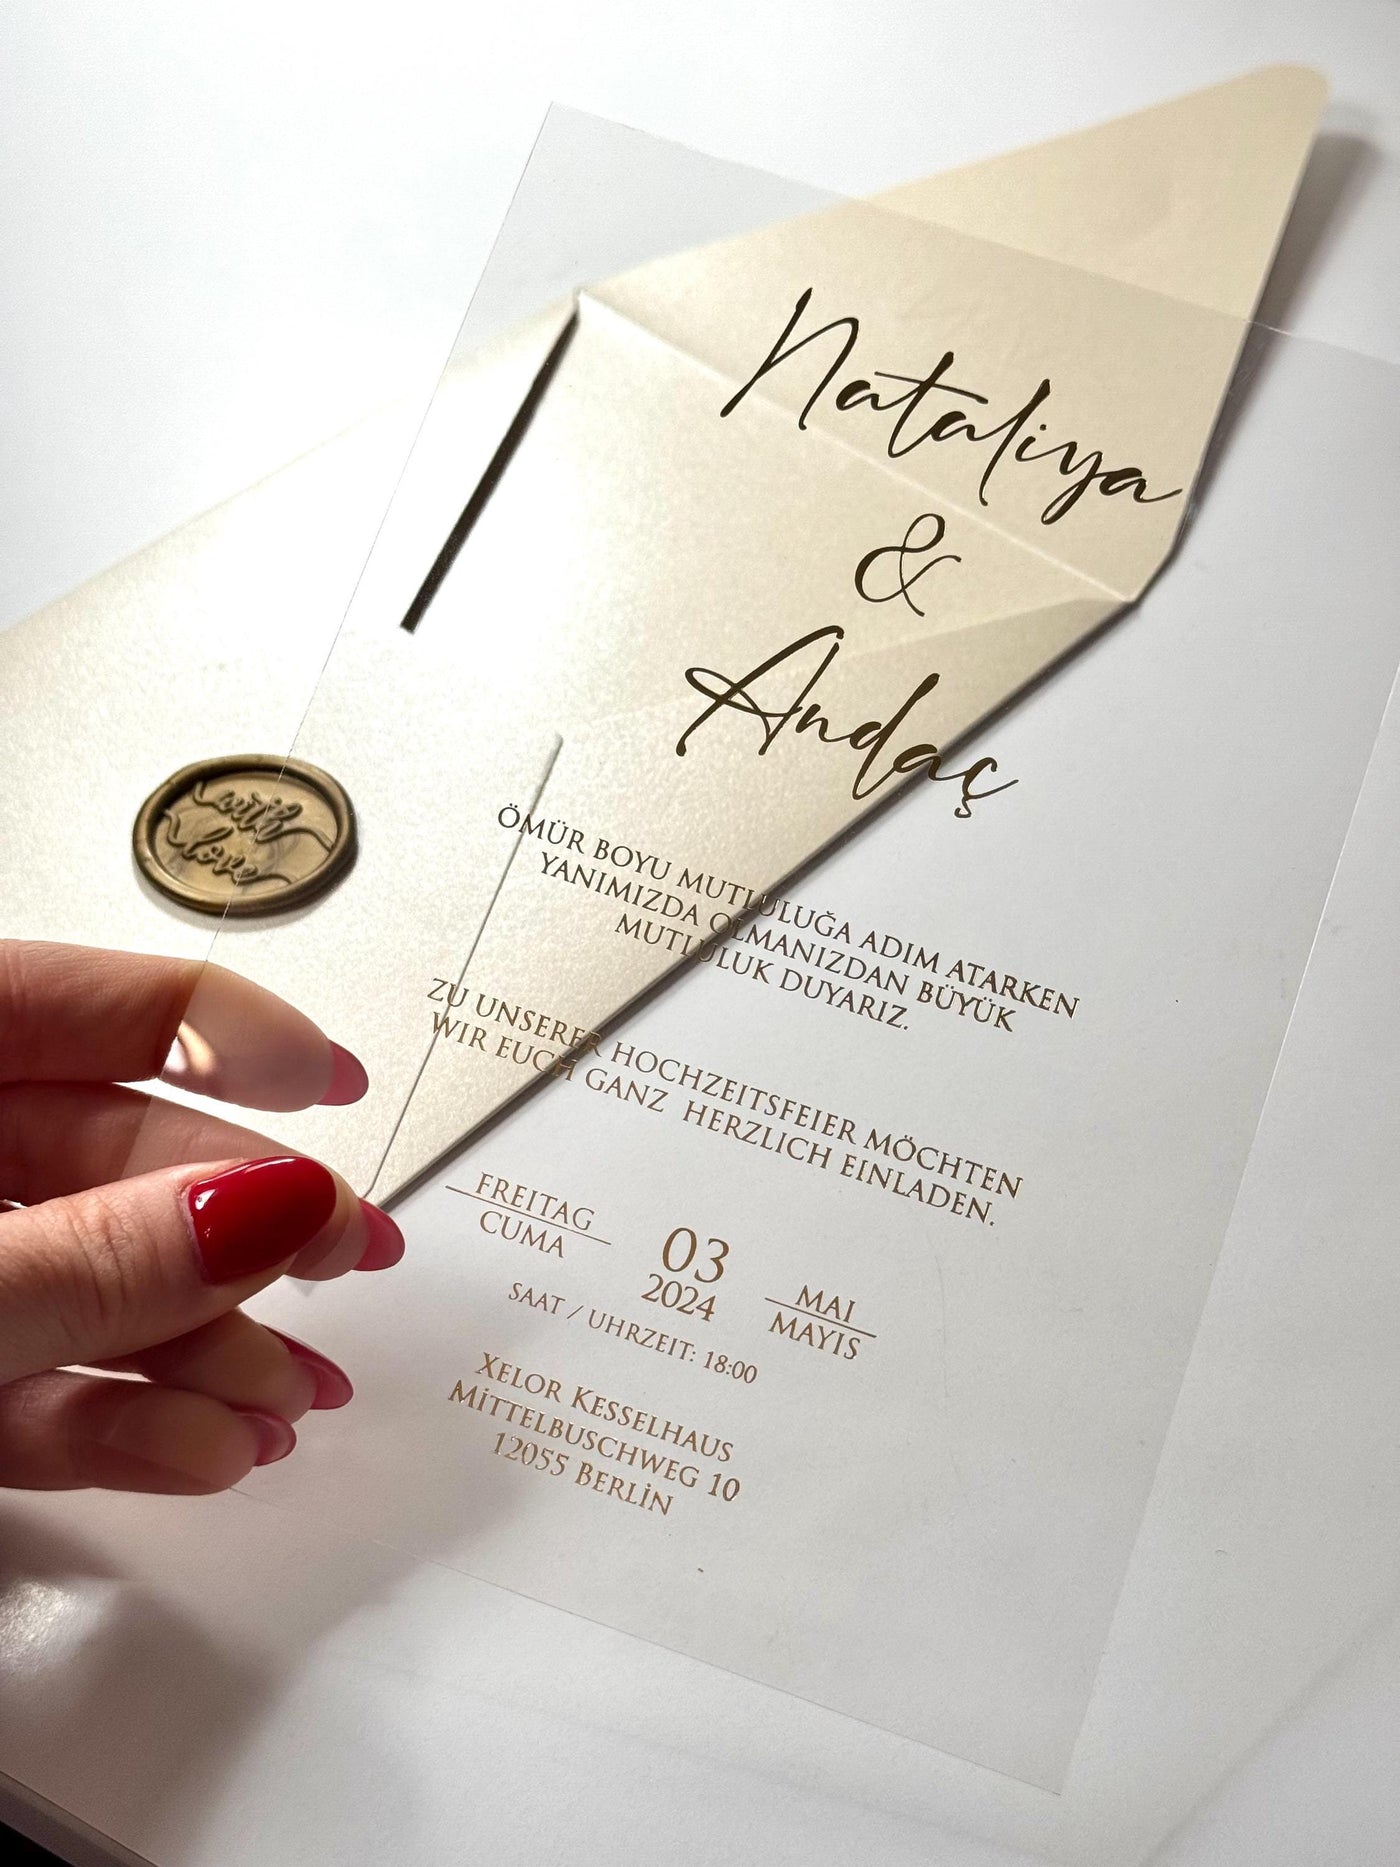 Nataliya
&
Andaç
ÖMÜR BOYU MUTLULUĞA ADIM ATARKEN
YANIMIZDA OLMANIZDAN BÜYÜK
MUTLULUK DUYARIZ.
ZU UNSERER HOCHZEITSFEIER MÖCHTEN
WIR EUCH GANZ HERZLICH EINLADEN.
FREITAG
CUMA
03
2024
MAI
MAYIS
SAAT / UHRZEIT: 18:00
XELOR KESSELHAUS
MİTTELBUSCHWEG 10
12055 BERLİN
with
love